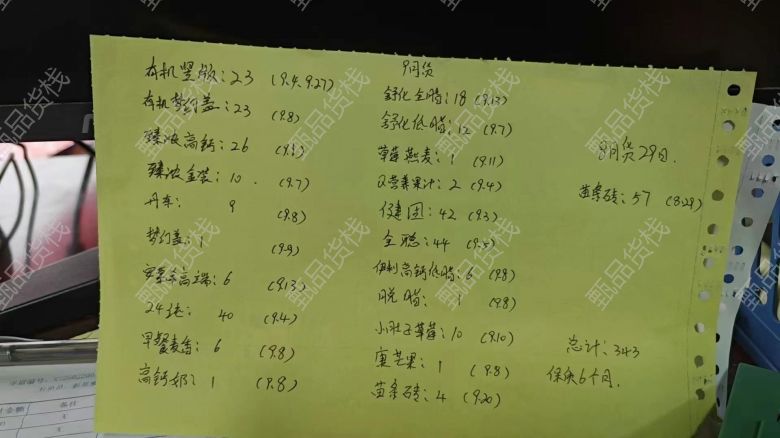 有机竖版:23 (9.4.9.27)
有机梦幻盖:23 (9.8)
臻浓高钙:26
臻浓金装:10. (9.7)
丹车: 9 (9.8)
梦幻盖:1 (9.9)
安慕希高端:6 (9.13)
24 40 (9.4)
早餐麦香:6 (9.8)
高钙奶:1 (9.8)
9月货
舒化全脂:18 (9.13)
舒化低脂:12 (9.7)
草莓燕麦:1 (9.11)
Q营养果汁:2 (9.4)
健固:42 (9.3)
全聪:44
伊利高钙低脂:6 (9.8)
脱脂: 1 (9.8)
草莓:10 (9.10)
果芒果:1 (9.8)
苗条砖:4 (9.20)
8月货29日.
苗条砖:57 (8.29)
总计:343
保质6个月.
甄品货栈